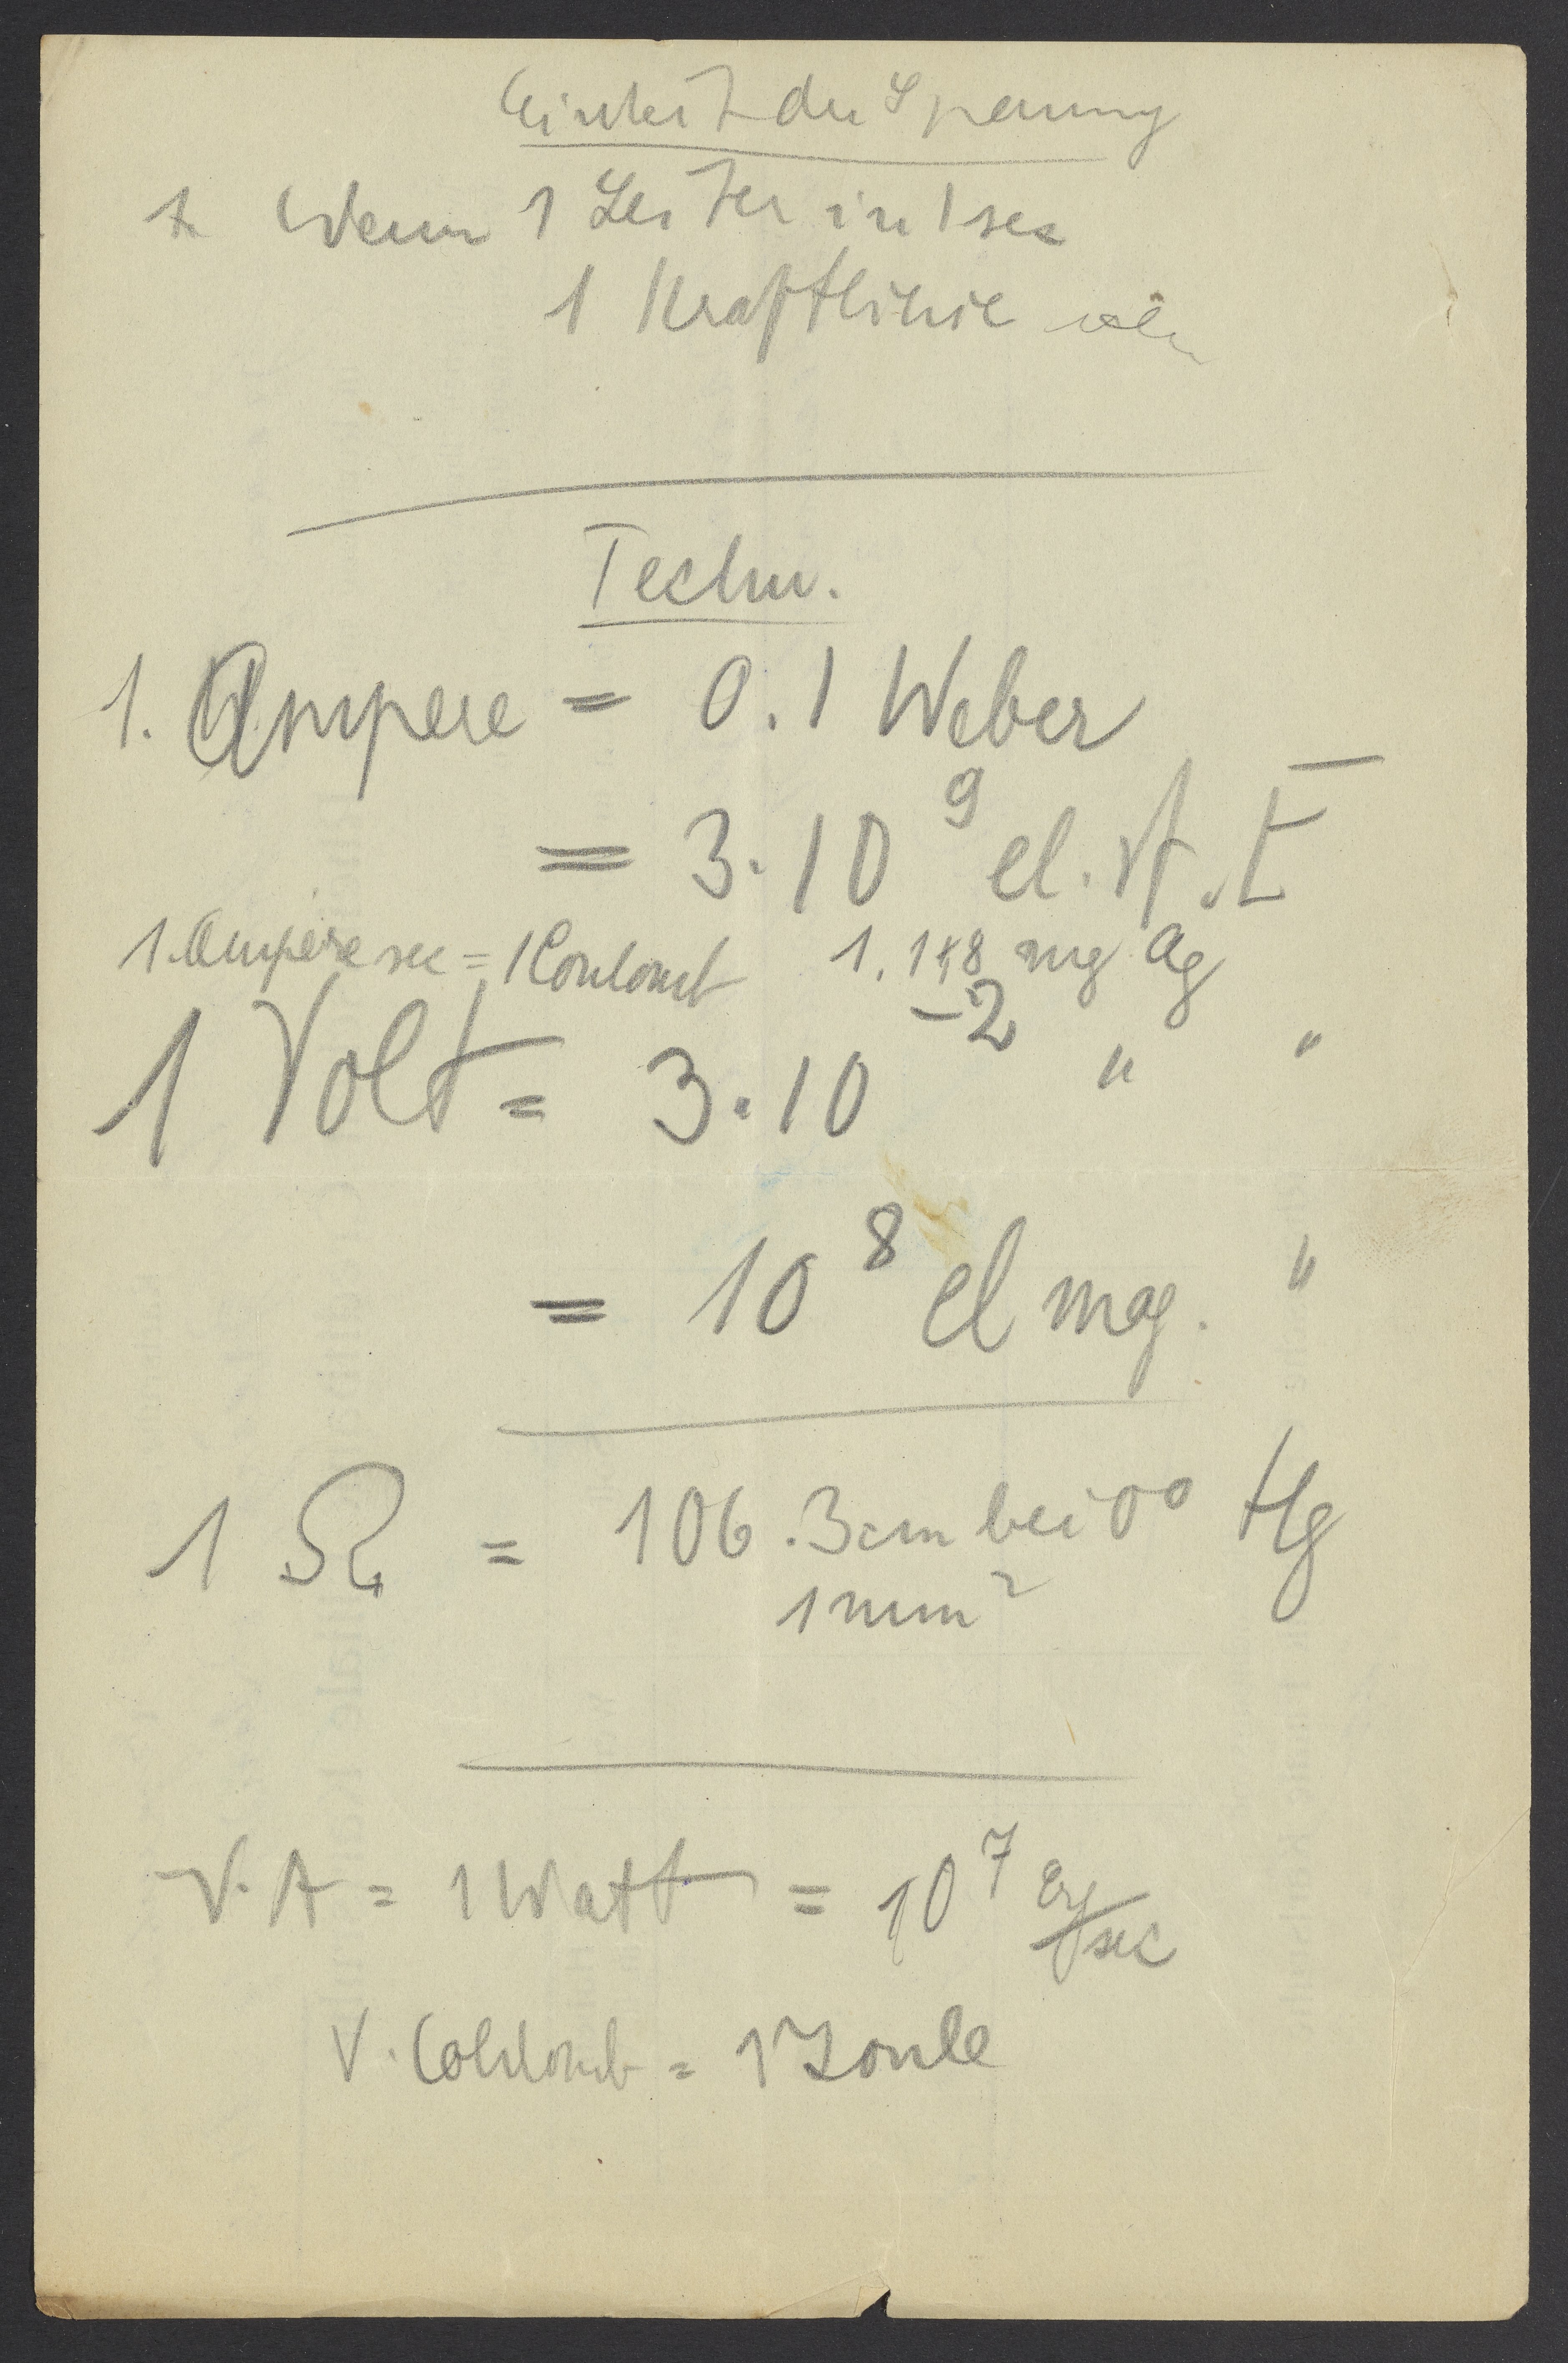 Einheit der Spannung
1. Wenn 1 Leiter in 1 sec
1 Kraftlinie
Techn.
1. Ampere = 0.1 Weber
= 3·10⁹ el. st. E
1. Ampère sec = 1 Coulomb 1.118 mg Ag
1 Volt = 3·10⁻² " "
= 10⁸ el mag. "
1 Ω = 106.3 cm bei 0° Hg
1 mm²
V·A = 1 Watt = 10⁷ Erg/sec
V. Coulomb = 1 Joule